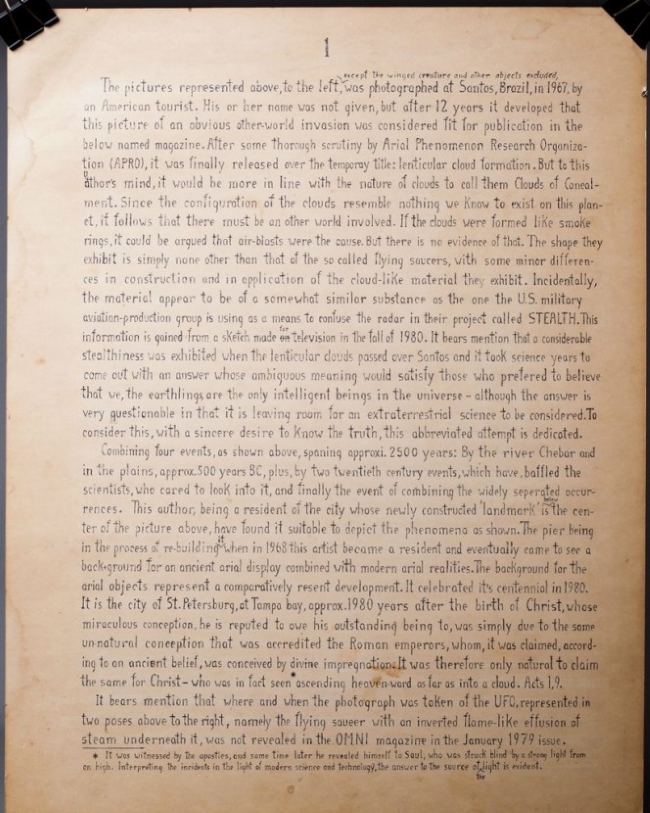 1
except the winged creature and other objects excluded,
The pictures represented above, to the left, was photographed at Santos, Brazil, in 1967, by
an American tourist. His or her name was not given, but after 12 years it developed that
this picture of an obvious other-world invasion was considered fit for publication in the
below named magazine. After some thorough scrutiny by Arial Phenomenon Research Organiza-
tion (APRO), it was finally released over the temporay title: lenticular cloud formation. But to this
author's mind, it would be more in line with the nature of clouds to call them Clouds of Conceal-
ment. Since the configuration of the clouds resemble nothing we know to exist on this plan-
et, it follows that there must be an other world involved. If the clouds were formed like smoke
rings, it could be argued that air-blasts were the cause. But there is no evidence of that. The shape they
exhibit is simply none other than that of the so called flying saucers, with some minor differen-
ces in construction and in application of the cloud-like material they exhibit. Incidentally,
the material appear to be of a somewhat similar substance as the one the U.S. military
aviation-production group is using as a means to confuse the radar in their project called STEALTH. This
information is gained from a sketch made for television in the fall of 1980. It bears mention that a considerable
stealthiness was exhibited when the lenticular clouds passed over Santos and it took science years to
come out with an answer whose ambiguous meaning would satisfy those who prefered to believe
that we, the earthlings, are the only intelligent beings in the universe - although the answer is
very questionable in that it is leaving room for an extraterrestrial science to be considered. To
consider this, with a sincere desire to know the truth, this abbreviated attempt is dedicated.
Combining four events, as shown above, spaning approxi. 2500 years: By the river Chebar and
in the plains, approx. 500 years BC, plus, by two twentieth century events, which have, baffled the
scientists, who cared to look into it, and finally the event of combining the widely seperated occur-
rences. This author, being a resident of the city whose newly constructed 'landmark' is below the cen-
ter of the picture above, have found it suitable to depict the phenomena as shown. The pier being
in the process of re-building it when in 1968 this artist became a resident and eventually came to see a
back-ground for an ancient arial display combined with modern arial realities. The background for the
arial objects represent a comparatively resent development. It celebrated it's centennial in 1980.
It is the city of St. Petersburg, at Tampa bay, approx. 1980 years after the birth of Christ, whose
miraculous conception, he is reputed to owe his outstanding being to, was simply due to the same
un-natural conception that was accredited the Roman emperors, whom, it was claimed, accord-
ing to an ancient belief, was conceived by divine impregnation. It was therefore only natural to claim
the same for Christ - who was in fact seen ascending heaven-ward as far as into a cloud.* Acts 1,9.
It bears mention that where and when the photograph was taken of the UFO, represented in
two poses above to the right, namely the flying saucer with an inverted flame-like effusion of
steam underneath it, was not revealed in the OMNI magazine in the January 1979 issue.
* It was witnessed by the apostles, and some time later he revealed himself to Saul, who was struck blind by a strong light from
on high. Interpreting the incidents in the light of modern science and technology, the answer to the source of the light is evident.